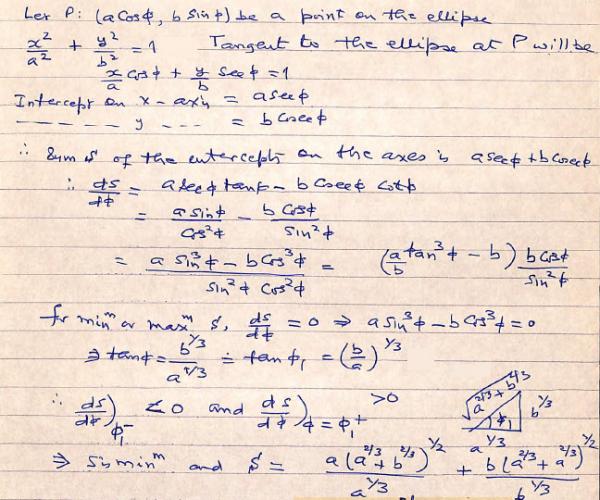 Let P: (a cosφ, b sinφ) be a point on the ellipse
x²/a² + y²/b² = 1 Tangent to the ellipse at P will be
x/a cosφ + y/b seeφ = 1
Intercept on x-axis = a secφ
— — — — — y — — — = b cosecφ
∴ Sum S of the intercepts on the axes is a secφ + b cosecφ
∴ ds/dφ = a secφ tanφ − b cosecφ cotφ
= a sinφ/cos²φ − b cosφ/sin²φ
= (a sin³φ − b cos³φ)/(sin²φ cos²φ) = (a/b tan³φ − b) b cosφ/sin²φ
for minᵐ or maxᵐ S, ds/dφ = 0 ⇒ a sin³φ − b cos³φ = 0
⇒ tanφ = b^1/3/a^1/3 = tanφ₁ = (b/a)^1/3
∴ ds/dφ)φ₁⁻ < 0 and ds/dφ)φ=φ₁⁺ > 0
√a^2/3 + b^2/3 b^1/3
φ₁
a^1/3
⇒ S is minᵐ and S = a(a^2/3 + b^2/3)^1/2/a^1/3 + b(a^2/3 + a^2/3)^1/2/b^1/3